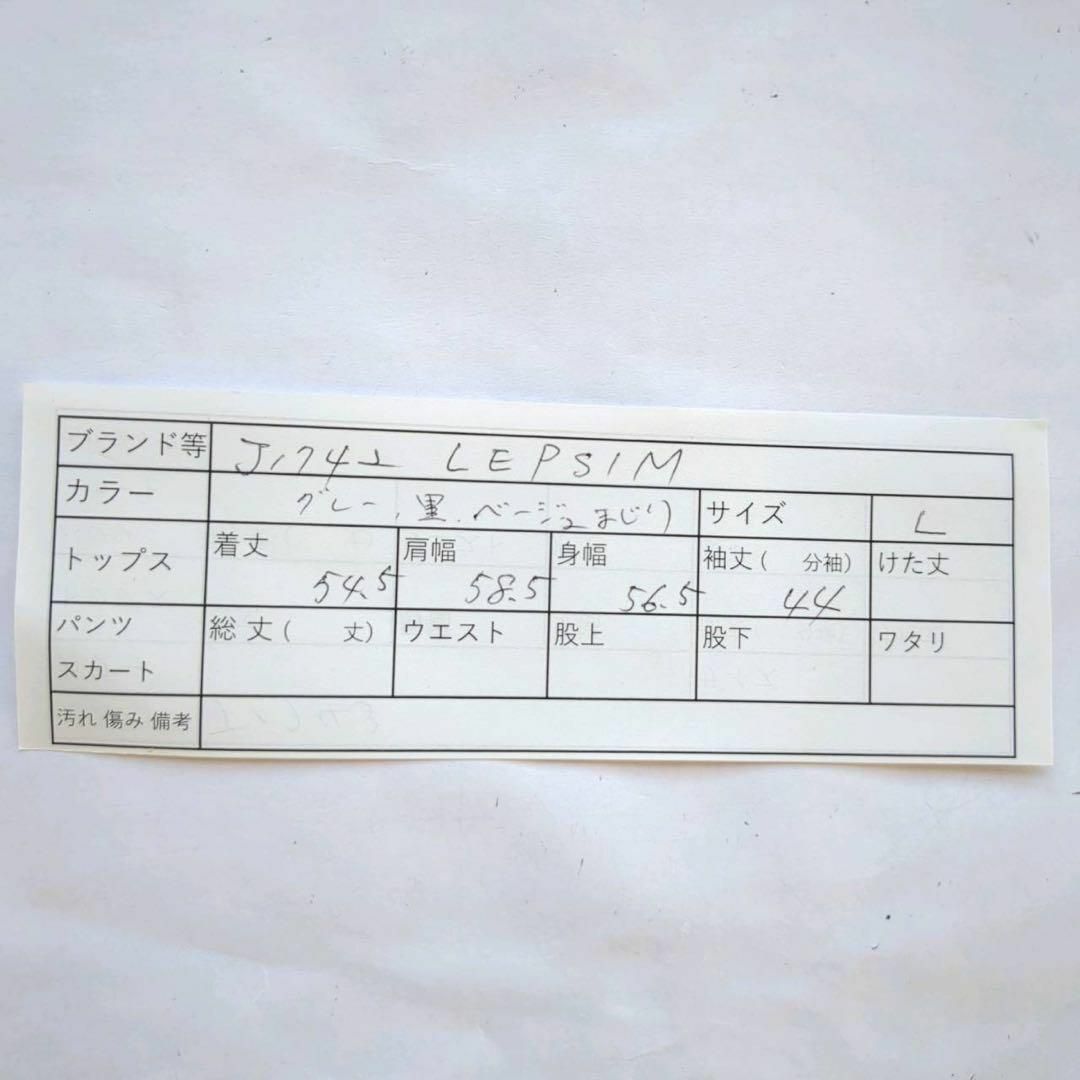 ブランド等 J1742 LEPSIM
カラー グレー、黒、ベージュまじり サイズ L
トップス 着丈 54.5 肩幅 58.5 身幅 56.5 袖丈( 分袖) 44 けた丈
パンツ スカート 総丈( 丈) ウエスト 股上 股下 ワタリ
汚れ 傷み 備考